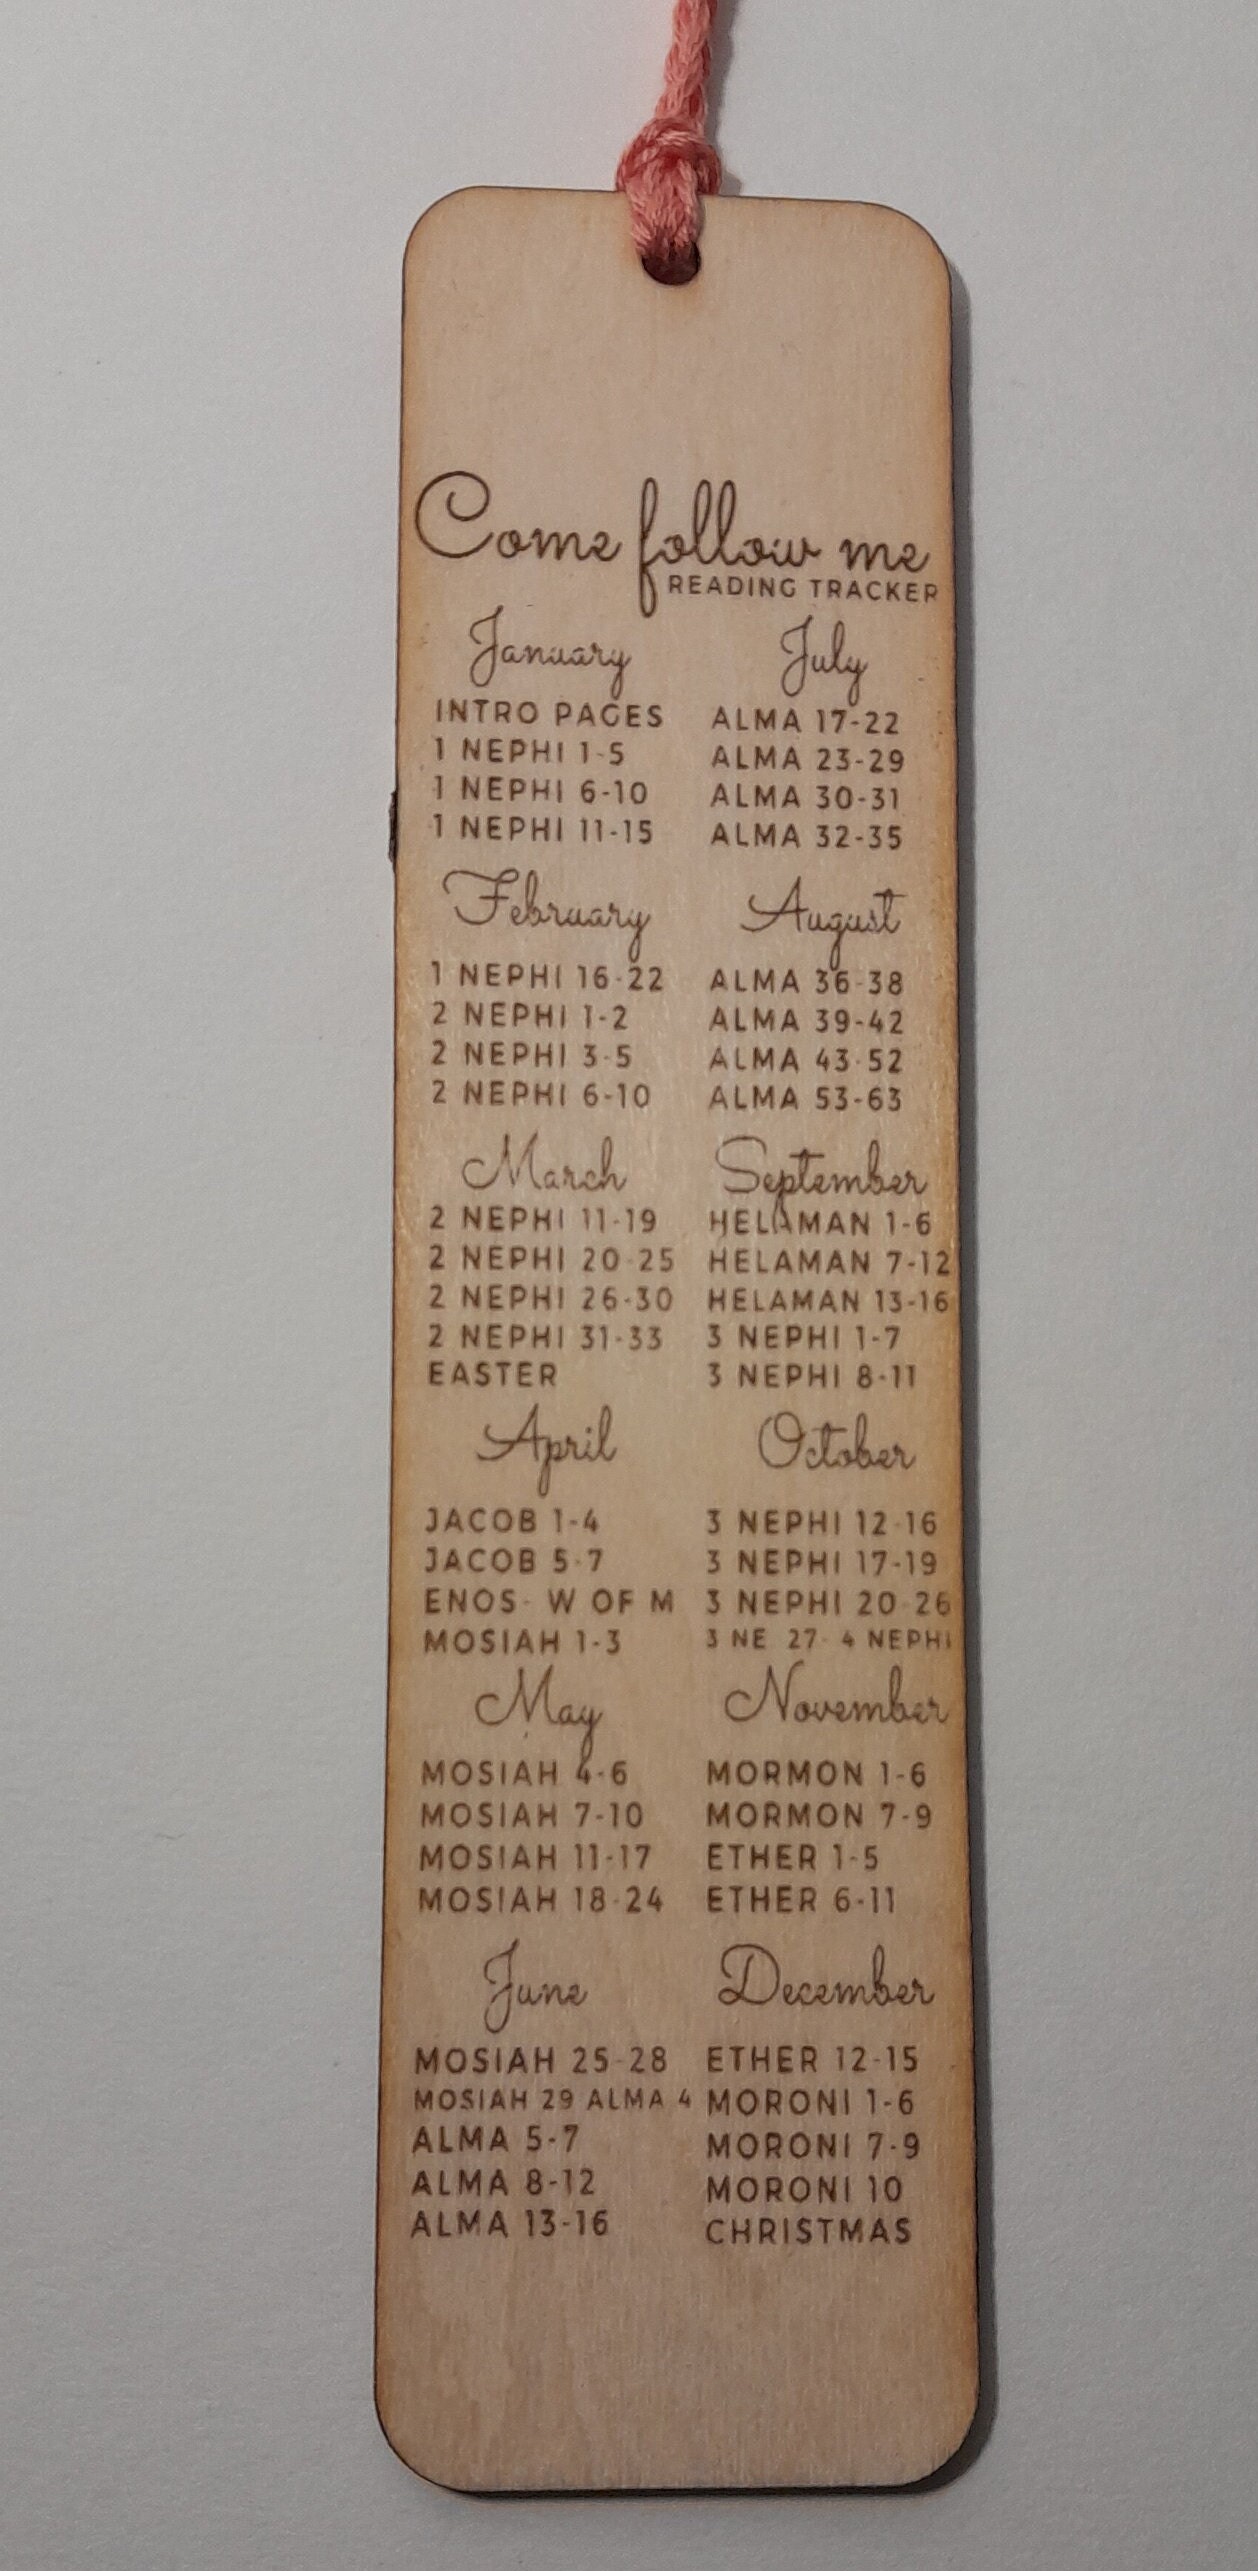 Come follow me
READING TRACKER
January
INTRO PAGES
1 NEPHI 1-5
1 NEPHI 6-10
1 NEPHI 11-15
February
1 NEPHI 16-22
2 NEPHI 1-2
2 NEPHI 3-5
2 NEPHI 6-10
March
2 NEPHI 11-19
2 NEPHI 20-25
2 NEPHI 26-30
2 NEPHI 31-33
EASTER
April
JACOB 1-4
JACOB 5-7
ENOS- W OF M
MOSIAH 1-3
May
MOSIAH 4-6
MOSIAH 7-10
MOSIAH 11-17
MOSIAH 18-24
June
MOSIAH 25-28
MOSIAH 29 ALMA 4
ALMA 5-7
ALMA 8-12
ALMA 13-16
July
ALMA 17-22
ALMA 23-29
ALMA 30-31
ALMA 32-35
August
ALMA 36-38
ALMA 39-42
ALMA 43-52
ALMA 53-63
September
HELAMAN 1-6
HELAMAN 7-12
HELAMAN 13-16
3 NEPHI 1-7
3 NEPHI 8-11
October
3 NEPHI 12-16
3 NEPHI 17-19
3 NEPHI 20-26
3 NE 27- 4 NEPHI
November
MORMON 1-6
MORMON 7-9
ETHER 1-5
ETHER 6-11
December
ETHER 12-15
MORONI 1-6
MORONI 7-9
MORONI 10
CHRISTMAS